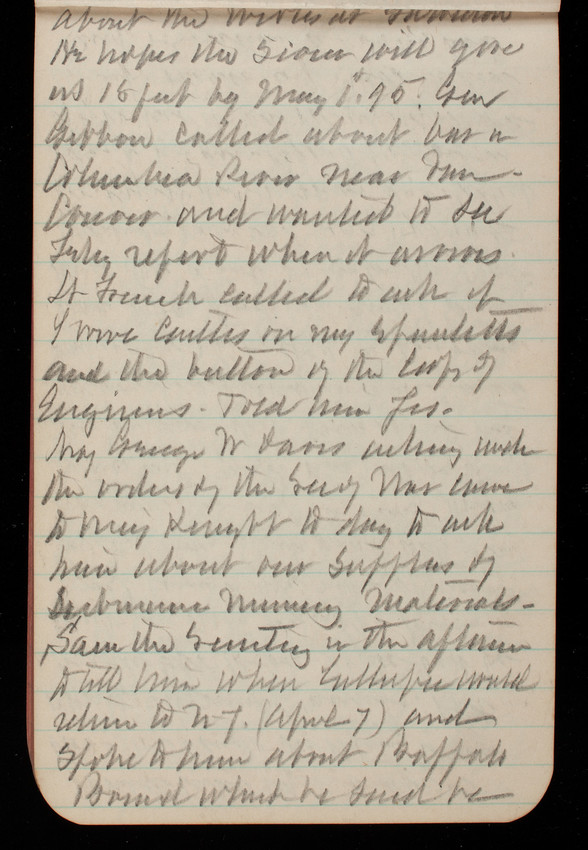 about the works at
He hopes the Sioux will give
us 18 feet by May 1st 95. Gen
Gibbon called about bar in
Columbia River near Van-
couver and wanted to see
report when it arrives.
Lt French called to ask if
I wore castles on my Epauletts
and the button of the Corps of
Engineers. Told him Yes.
Maj George W Davis acting under
the orders of the Secy War came
to Maj Knight to day to ask
him about our Supplies of
Submarine Mining Materials.
Saw the Secretary in the afternoon
to tell him when Gillespie would
return to N.Y. (April 7) and
spoke to him about Buffalo
Board which he said he